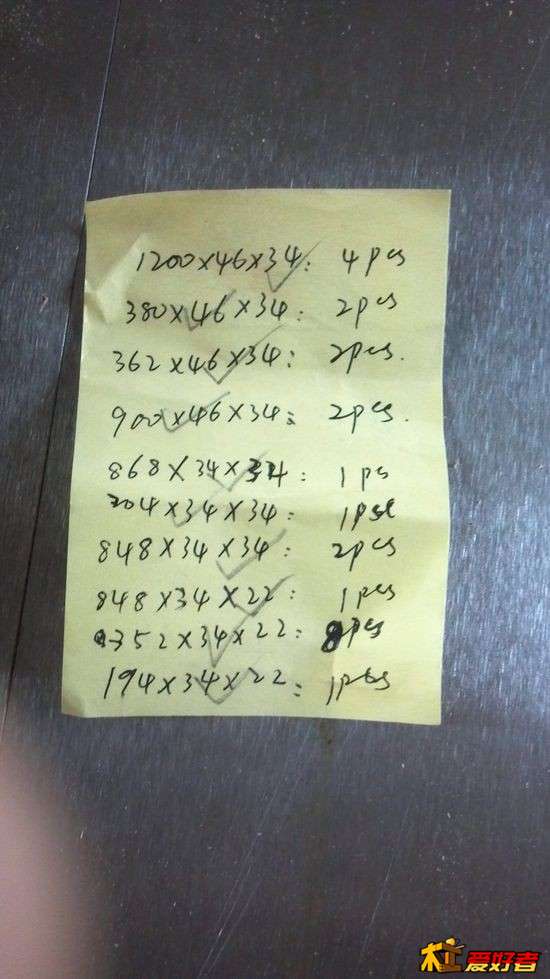 1200×46×34: 4pcs
380×46×34: 2pcs
362×46×34: 2pcs.
900×46×34: 2pcs.
868×34×34: 1ps
204×34×34: 1pse
848×34×34: 2pcs
848×34×22: 1pcs
352×34×22: 8pcs
194×34×22: 1pcs
木工爱好者